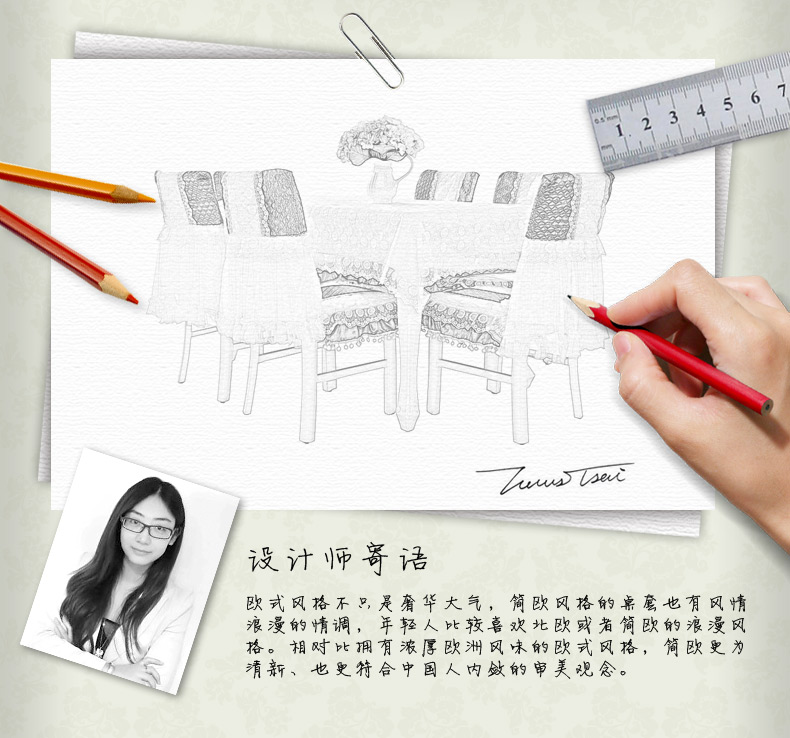 0.5 mm 1 2 3 4 5 6 7
mm
设计师寄语
欧式风格不只是奢华大气，简欧风格的桌套也有风情
浪漫的情调，年轻人比较喜欢北欧或者简欧的浪漫风
格。相对比拥有浓厚欧洲风味的欧式风格，简欧更为
清新、也更符合中国人内敛的审美观念。